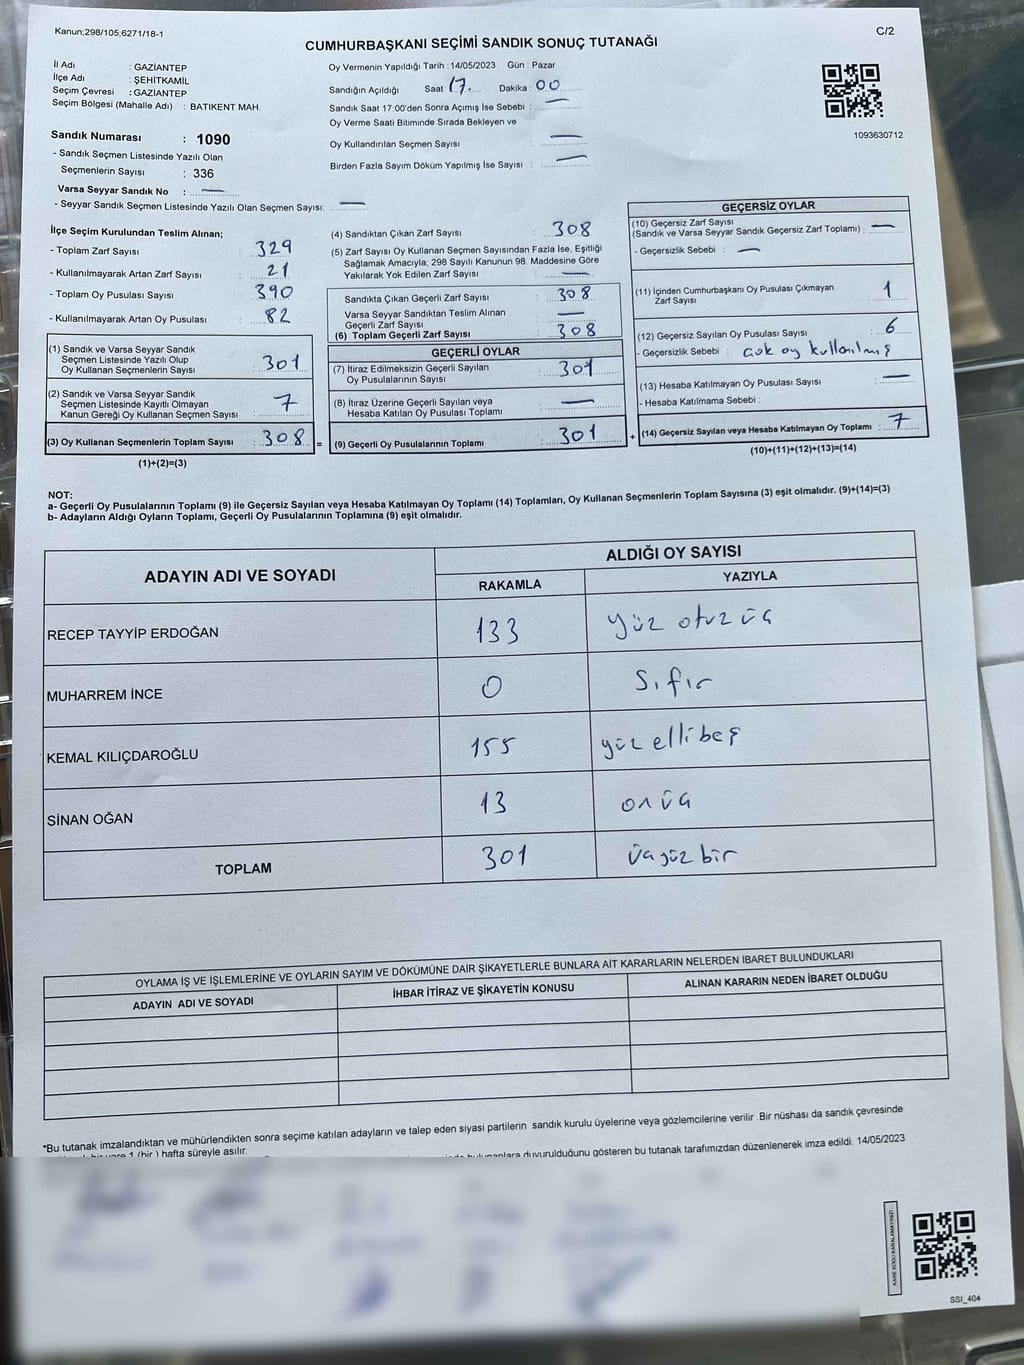 Kanun;298/105;6271/18-1
C/2
CUMHURBAŞKANI SEÇİMİ SANDIK SONUÇ TUTANAĞI
İl Adı : GAZİANTEP
İlçe Adı : ŞEHİTKAMİL
Seçim Çevresi : GAZİANTEP
Seçim Bölgesi (Mahalle Adı) : BATIKENT MAH.
Oy Vermenin Yapıldığı Tarih :14/05/2023 Gün : Pazar
Sandığın Açıldığı Saat 17 Dakika 00
Sandık Saat 17:00'den Sonra Açımış İse Sebebi : —
Oy Verme Saati Bitiminde Sırada Bekleyen ve
Oy Kullandırılan Seçmen Sayısı —
Birden Fazla Sayım Döküm Yapılmış İse Sayısı : —
1093630712
Sandık Numarası : 1090
- Sandık Seçmen Listesinde Yazılı Olan
Seçmenlerin Sayısı : 336
Varsa Seyyar Sandık No : —
- Seyyar Sandık Seçmen Listesinde Yazılı Olan Seçmen Sayısı: —
İlçe Seçim Kurulundan Teslim Alınan;
- Toplam Zarf Sayısı : 329
- Kullanılmayarak Artan Zarf Sayısı : 21
- Toplam Oy Pusulası Sayısı : 390
- Kullanılmayarak Artan Oy Pusulası : 82
(1) Sandık ve Varsa Seyyar Sandık
Seçmen Listesinde Yazılı Olup
Oy Kullanan Seçmenlerin Sayısı : 301
(2) Sandık ve Varsa Seyyar Sandık
Seçmen Listesinde Kayıtlı Olmayan
Kanun Gereği Oy Kullanan Seçmen Sayısı : 7
(3) Oy Kullanan Seçmenlerin Toplam Sayısı : 308
(1)+(2)=(3)
(4) Sandıktan Çıkan Zarf Sayısı : 308
(5) Zarf Sayısı Oy Kullanan Seçmen Sayısından Fazla İse, Eşitliği
Sağlamak Amacıyla, 298 Sayılı Kanunun 98. Maddesine Göre
Yakılarak Yok Edilen Zarf Sayısı : —
Sandıkta Çıkan Geçerli Zarf Sayısı : 308
Varsa Seyyar Sandıktan Teslim Alınan
Geçerli Zarf Sayısı : —
(6) Toplam Geçerli Zarf Sayısı : 308
GEÇERLİ OYLAR
(7) İtiraz Edilmeksizin Geçerli Sayılan
Oy Pusulalarının Sayısı : 301
(8) İtiraz Üzerine Geçerli Sayılan veya
Hesaba Katılan Oy Pusulası Toplamı : —
= (9) Geçerli Oy Pusulalarının Toplamı : 301
GEÇERSİZ OYLAR
(10) Geçersiz Zarf Sayısı
(Sandık ve Varsa Seyyar Sandık Geçersiz Zarf Toplamı) : —
- Geçersizlik Sebebi : —
(11) İçinden Cumhurbaşkanı Oy Pusulası Çıkmayan
Zarf Sayısı : 1
(12) Geçersiz Sayılan Oy Pusulası Sayısı : 6
- Geçersizlik Sebebi : çok oy kullanılmış
(13) Hesaba Katılmayan Oy Pusulası Sayısı : —
- Hesaba Katılmama Sebebi :
+ (14) Geçersiz Sayılan veya Hesaba Katılmayan Oy Toplamı : 7
(10)+(11)+(12)+(13)=(14)
NOT:
a- Geçerli Oy Pusulalarının Toplamı (9) ile Geçersiz Sayılan veya Hesaba Katılmayan Oy Toplamı (14) Toplamları, Oy Kullanan Seçmenlerin Toplam Sayısına (3) eşit olmalıdır. (9)+(14)=(3)
b- Adayların Aldığı Oyların Toplamı, Geçerli Oy Pusulalarının Toplamına (9) eşit olmalıdır.
ADAYIN ADI VE SOYADI
ALDIĞI OY SAYISI
RAKAMLA YAZIYLA
RECEP TAYYİP ERDOĞAN 133 yüz otuz üç
MUHARREM İNCE 0 Sıfır
KEMAL KILIÇDAROĞLU 155 yüz elli beş
SİNAN OĞAN 13 on üç
TOPLAM 301 üçyüz bir
OYLAMA İŞ VE İŞLEMLERİNE VE OYLARIN SAYIM VE DÖKÜMÜNE DAİR ŞİKAYETLERLE BUNLARA AİT KARARLARIN NELERDEN İBARET BULUNDUKLARI
ADAYIN ADI VE SOYADI İHBAR İTİRAZ VE ŞİKAYETİN KONUSU ALINAN KARARIN NEDEN İBARET OLDUĞU
*Bu tutanak imzalandıktan ve mühürlendikten sonra seçime katılan adayların ve talep eden siyasi partilerin sandık kurulu üyelerine veya gözlemcilerine verilir .Bir nüshası da sandık çevresinde
1 (bir ) hafta süreyle asılır.
duyurulduğunu gösteren bu tutanak tarafımızdan düzenlenerek imza edildi. 14/05/2023
KARE KODU KARALAMAYINIZ!
SSI_404